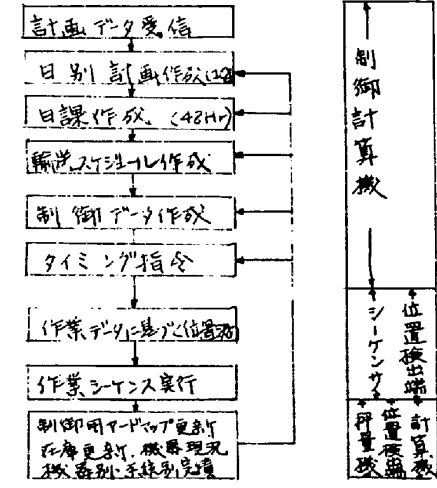 計画データ受信
日別計画作成
日課作成 (48Hr)
輸送スケジュール作成
制御データ作成
タイミング指令
作業データに基づく位置
作業シーケンス実行
制御用ヤードマップ更新
在庫更新、機器現況
機器別・系統別実績
制御計算機
シーケンサ
位置検出端
秤量機
位置検出端
計算機